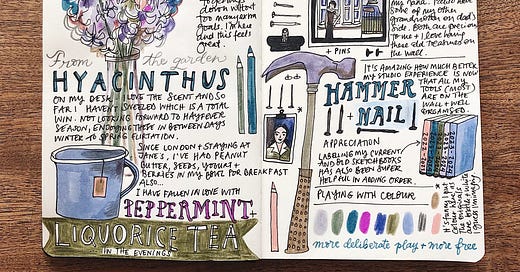 together
without
too many firm
goals. When I
find this feels
great.
From the garden
HYACINTHUS
ON MY DESK. I LOVE THE SCENT AND SO
FAR I HAVEN'T SNEEZED WHICH IS A TOTAL
WIN. NOT LOOKING FORWARD TO HAYFEVER
SEASON, ENJOYING THESE IN BETWEEN DAYS
WINTER TO SPRING FLIRTATION.
SINCE LONDON + STAYING AT
JANE'S, I'VE HAD PEANUT
BUTTER, SEEDS, YOGURT +
BERRIES IN MY BOWL FOR BREAKFAST
ALSO...
I HAVE FALLEN IN LOVE WITH
PEPPERMINT +
LIQUORICE TEA
IN THE EVENINGS
+ PINS
one of my other
grandmother on dad's
side. Both are precious
to me + I love having
these old treasures on
the wall.
IT'S AMAZING HOW MUCH BETTER
MY STUDIO EXPERIENCE IS NOW
THAT ALL MY
TOOLS (MOST)
ARE ON THE
WALL + WELL
ORGANISED.
HAMMER
+ NAIL!
APPRECIATION
LABELING MY CURRENT
AND OLD SKETCHBOOKS
HAS ALSO BEEN SUPER
HELPFUL IN ADDING ORDER.
PLAYING WITH COLOUR
more deliberate play + more free